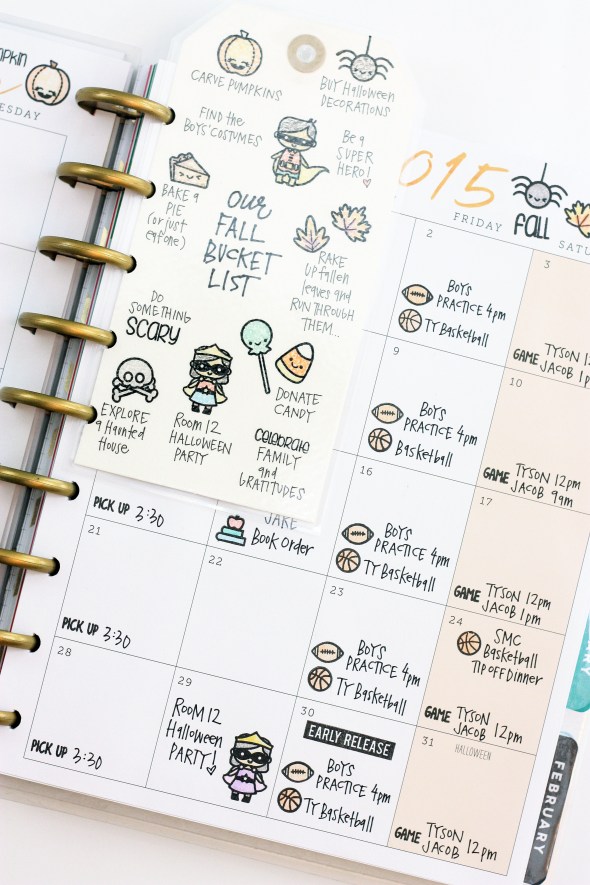 ESDAY
CARVE PUMPKINS
BUY Halloween
DECORATIONS
FIND the
BOYS' COSTUMES
Be a
SUPER
HERO!
BAKE a
PIE
(or just
eat one)
OUR
FALL
BUCKET
LIST
RAKE
UP fallen
leaves and
RUN THROUGH
THEM...
DO
SOMETHING
SCARY
EXPLORE
a Haunted
House
ROOM 12
HALLOWEEN
PARTY
DONATE
CANDY
CELEBRATE
FAMILY
and
GRATITUDES
015
FRIDAY
fall
SATU
2
BOYS
PRACTICE 4pm
TY Basketball
3
GAME TYSON 1
JACOB 1p
9
BOYS
PRACTICE 4pm
Basketball
10
GAME TYSON 12pm
JACOB 9am
PICK UP 3:30
JAKE
Book Order
16
BOYS
PRACTICE 4pm
TY Basketball
17
GAME TYSON 12pm
JACOB 1pm
21
PICK UP 3:30
22
23
BOYS
PRACTICE 4pm
TY Basketball
24
SMC
Basketball
TIP OFF Dinner
GAME TYSON
JACOB 12pm
28
PICK UP 3:30
29
ROOM 12
Halloween
PARTY!
30
EARLY RELEASE
BOYS
PRACTICE 4pm
TY Basketball
31
HALLOWEEN
GAME TYSON
JACOB 12pm
FEBRUARY